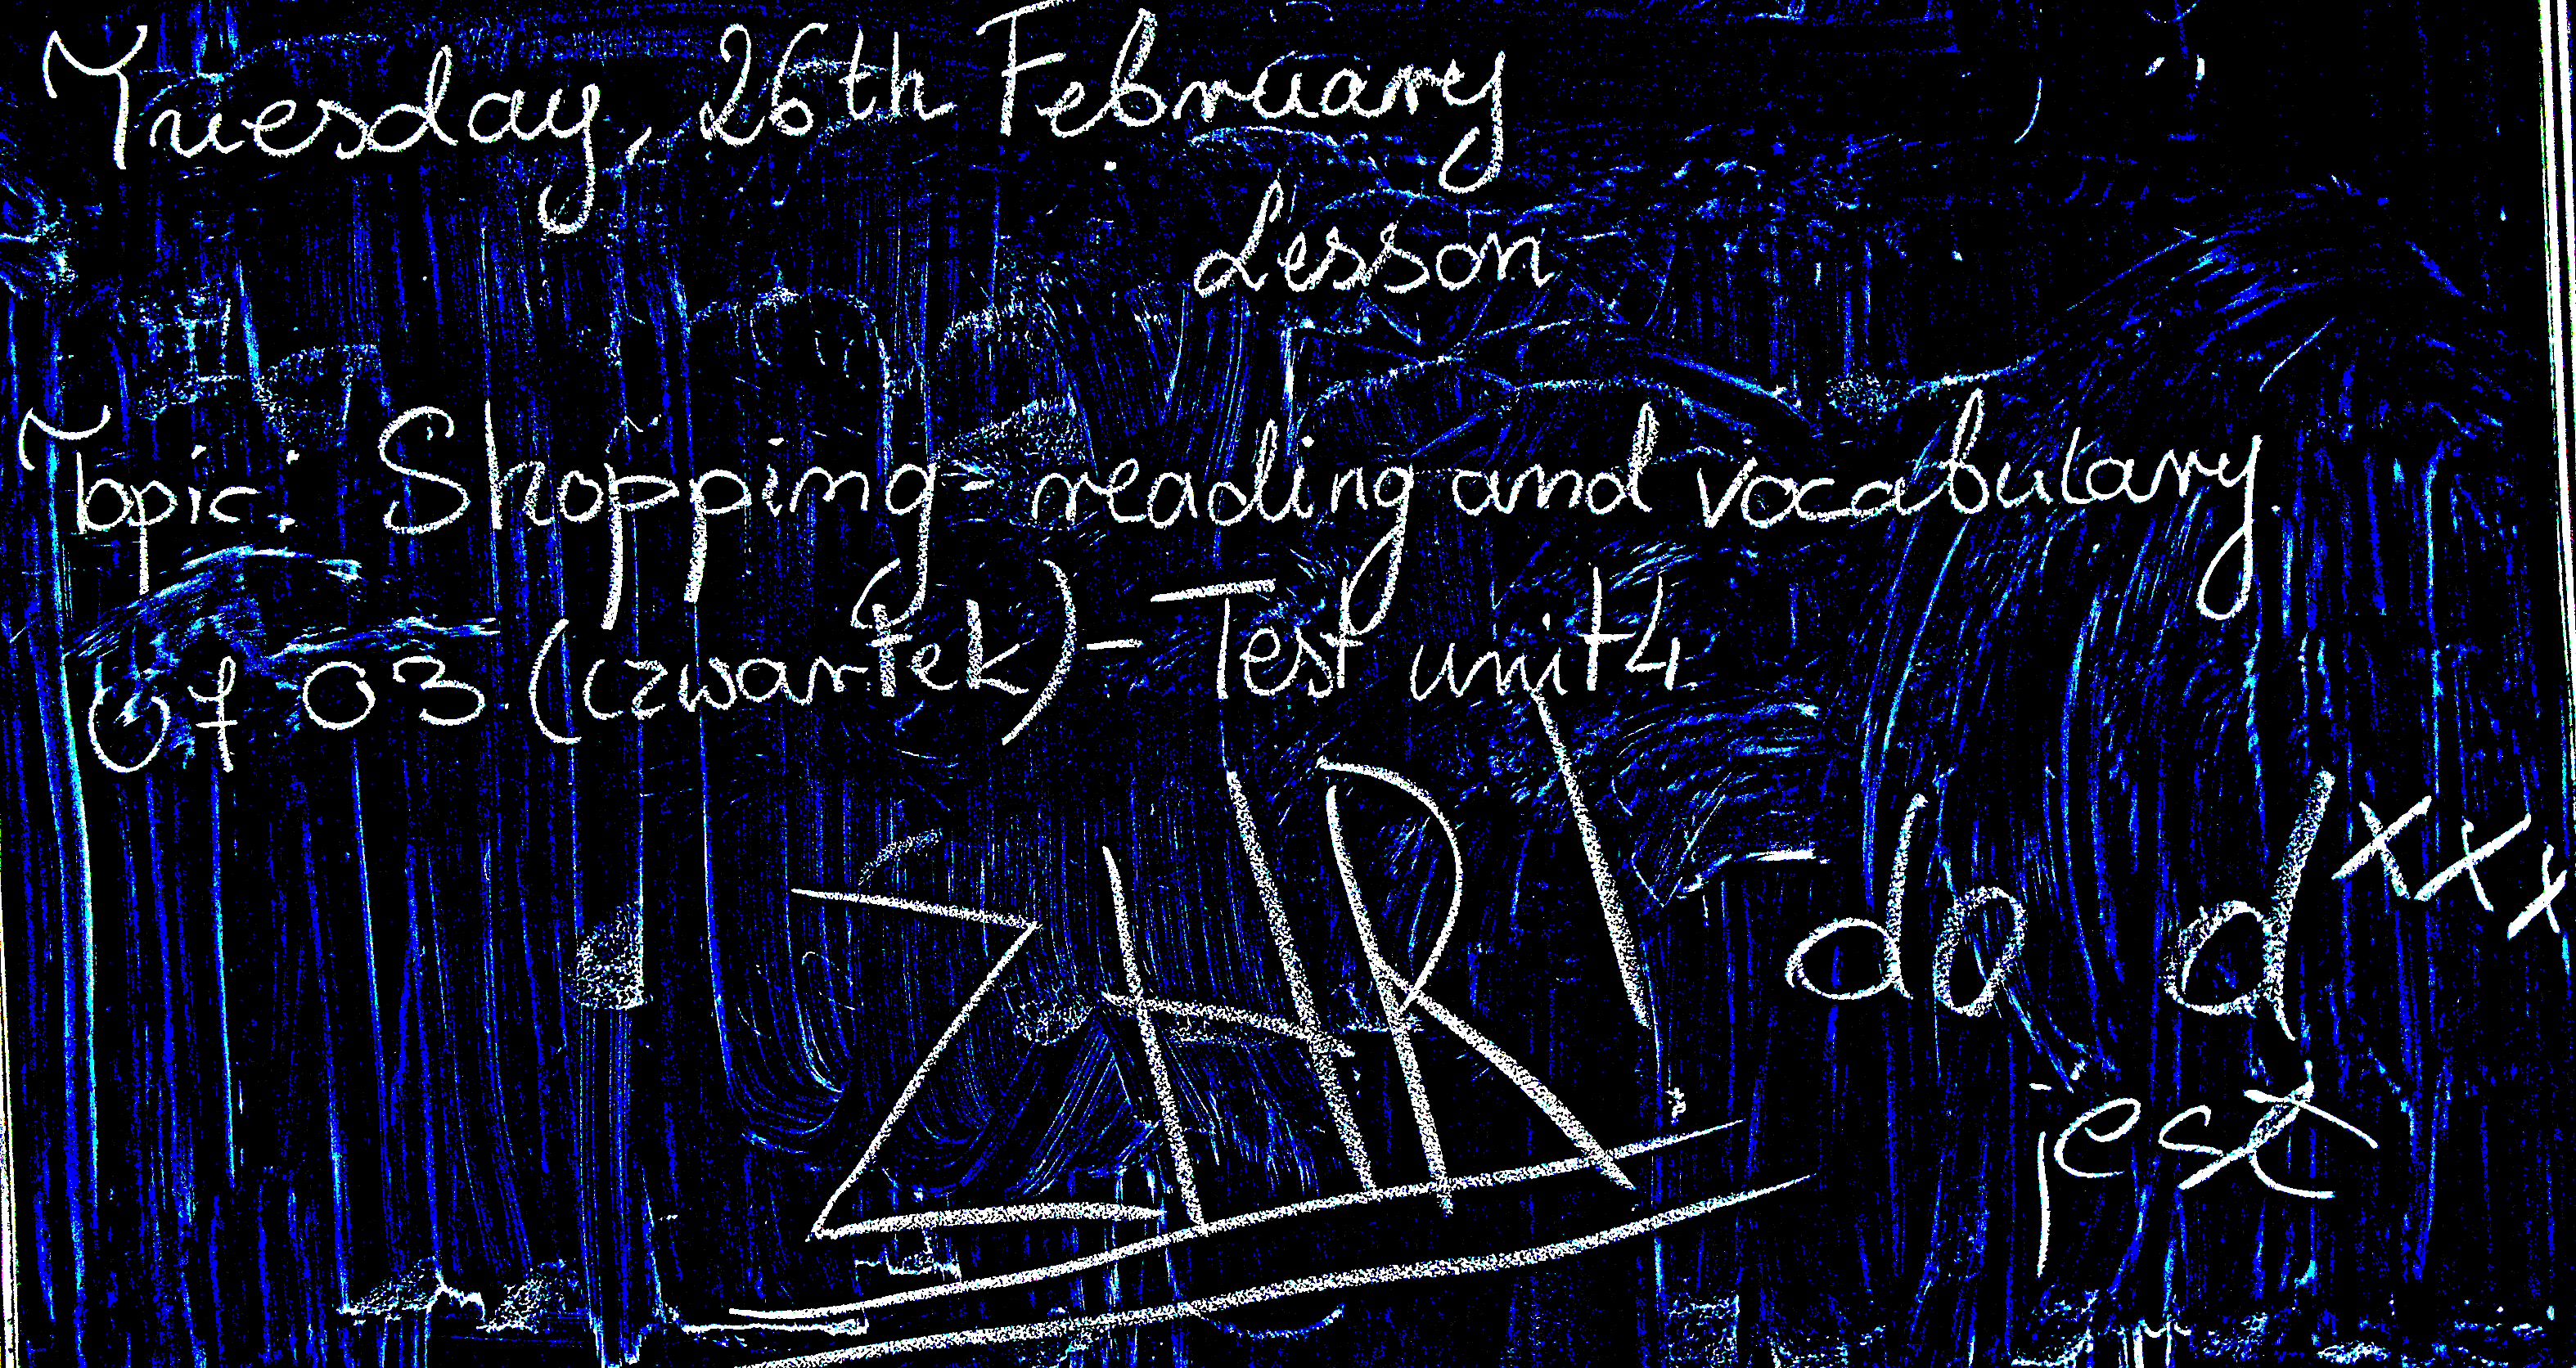 Tuesday, 26th February
Lesson
Topic: Shopping - reading and vocabulary.
07 03 (czwartek) - Test unit 4
ZHR - do dxxx
jest